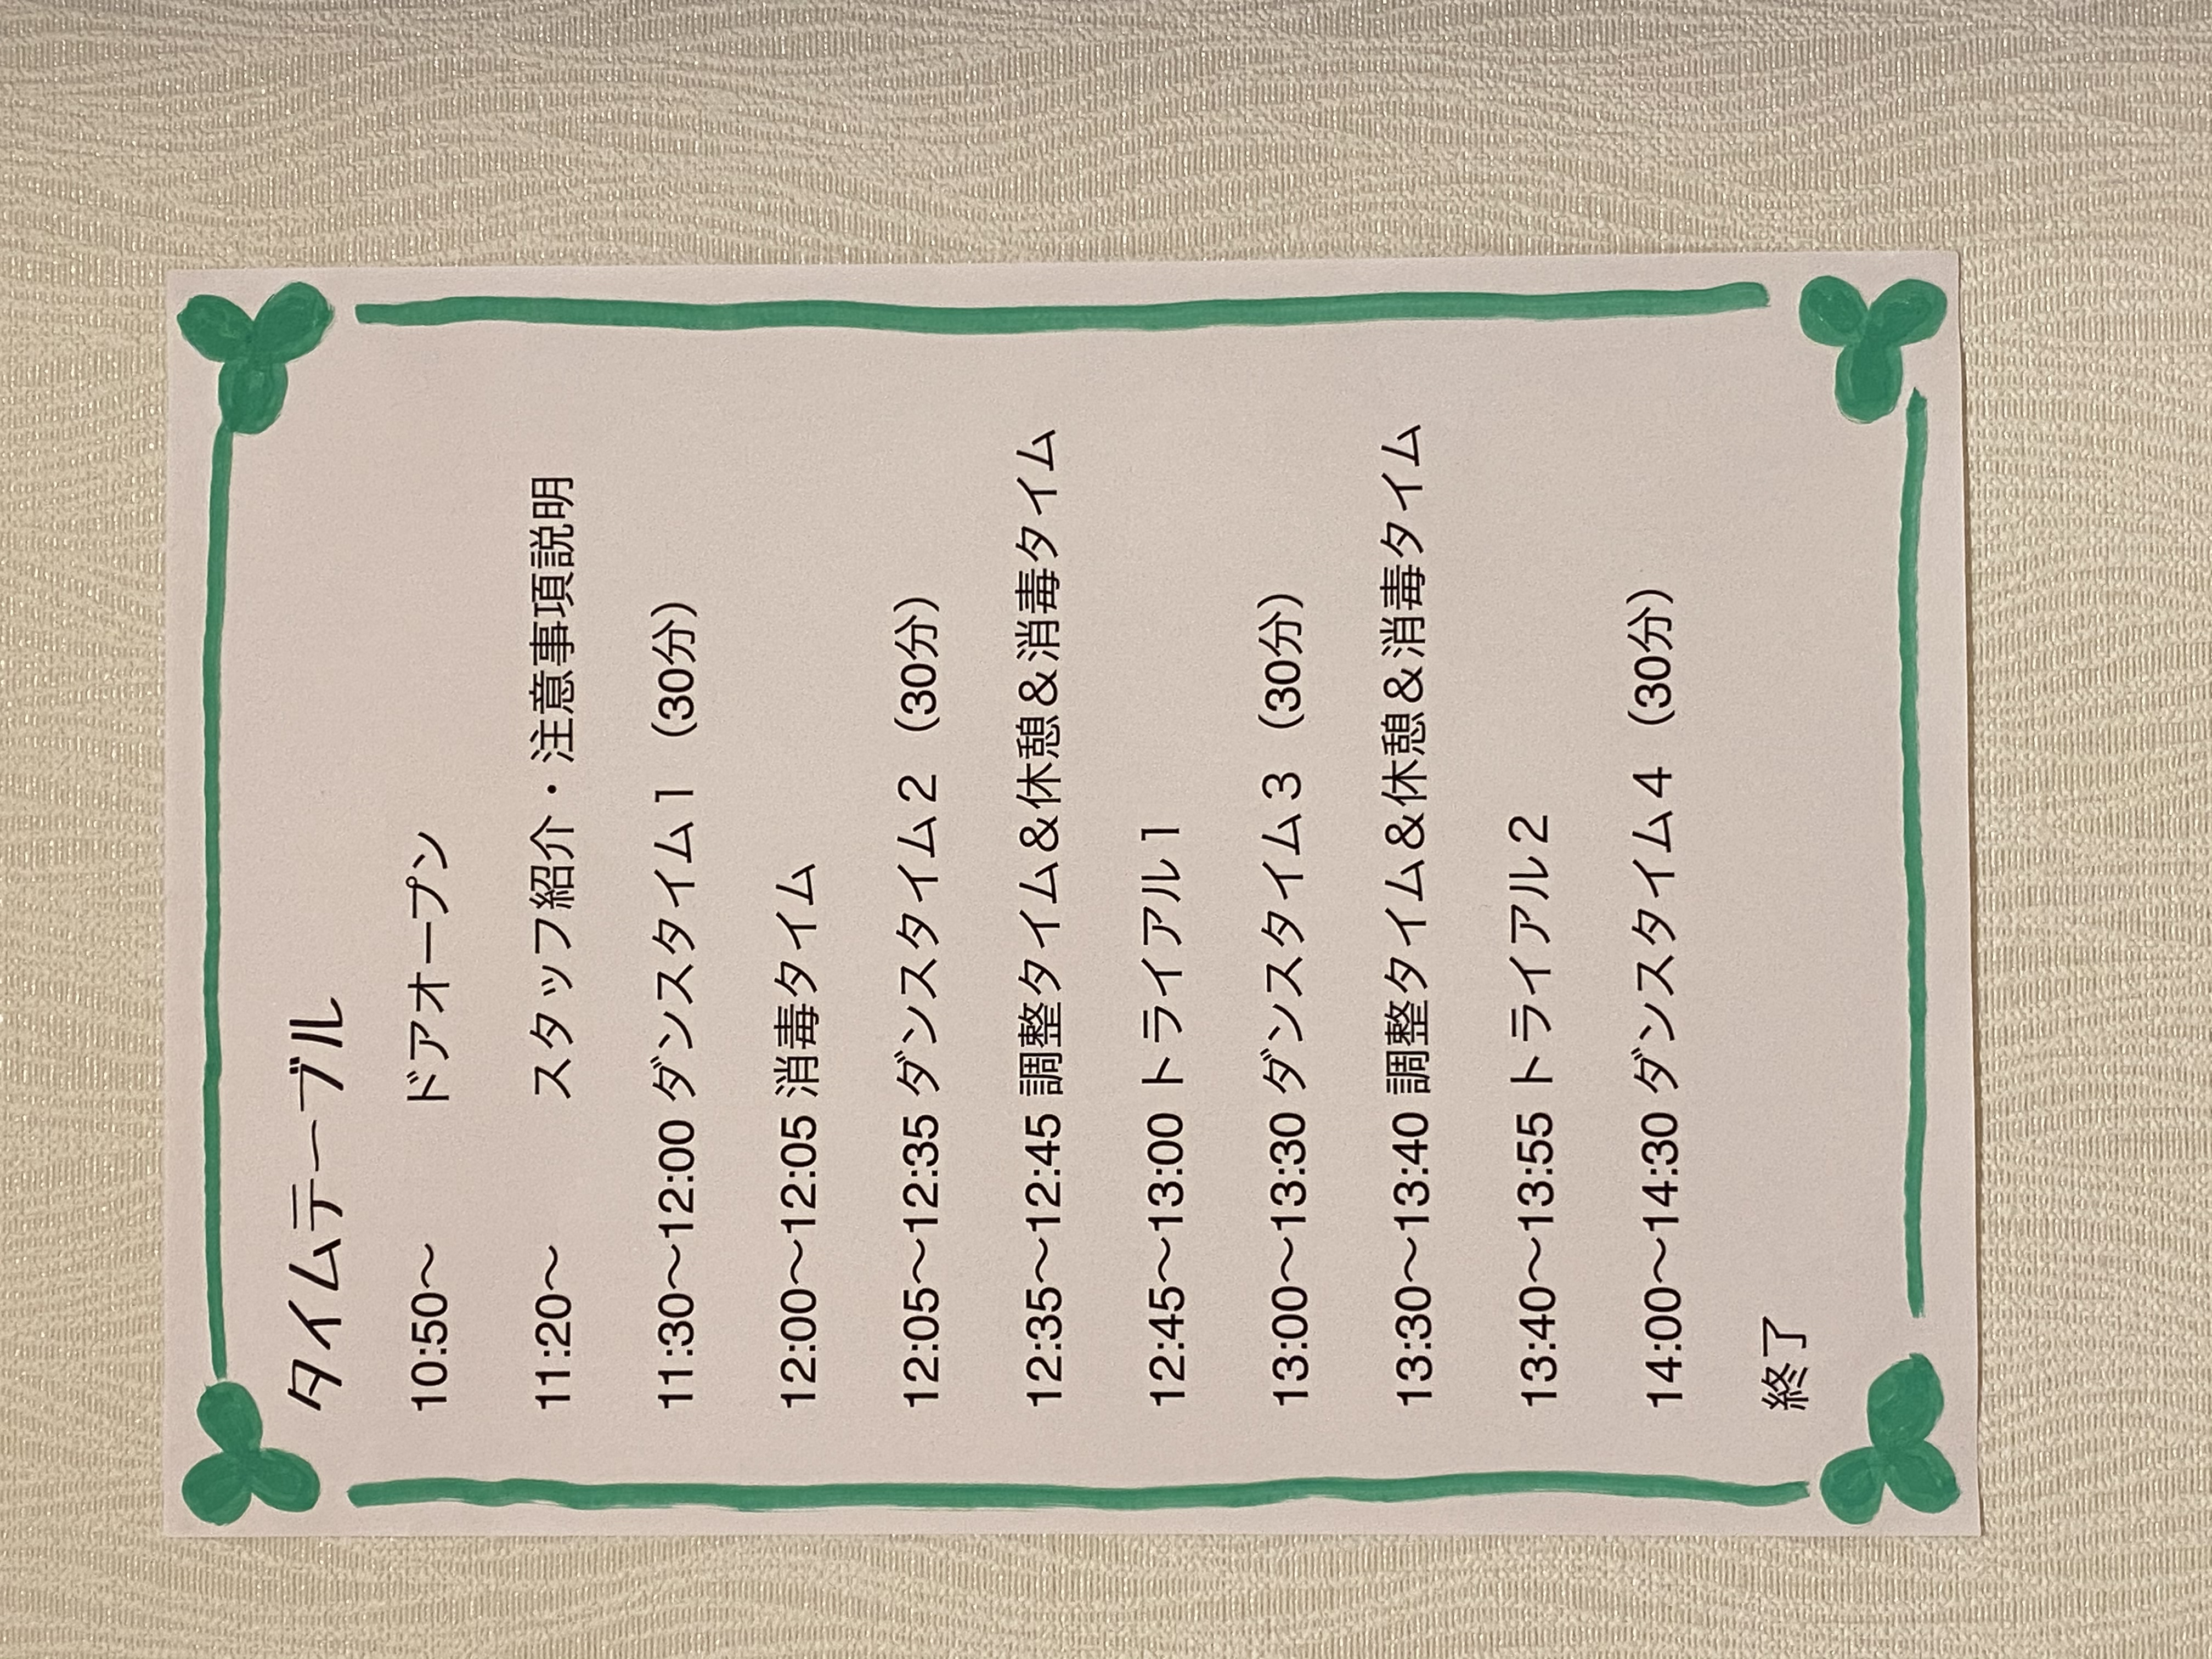 タイムテーブル
10:50〜 ドアオープン
11:20〜 スタッフ紹介・注意事項説明
11:30〜12:00 ダンスタイム1 （30分）
12:00〜12:05 消毒タイム
12:05〜12:35 ダンスタイム2 （30分）
12:35〜12:45 調整タイム&休憩＆消毒タイム
12:45〜13:00 トライアル1
13:00〜13:30 ダンスタイム3 （30分）
13:30〜13:40 調整タイム&休憩＆消毒タイム
13:40〜13:55 トライアル2
14:00〜14:30 ダンスタイム4 （30分）
終了